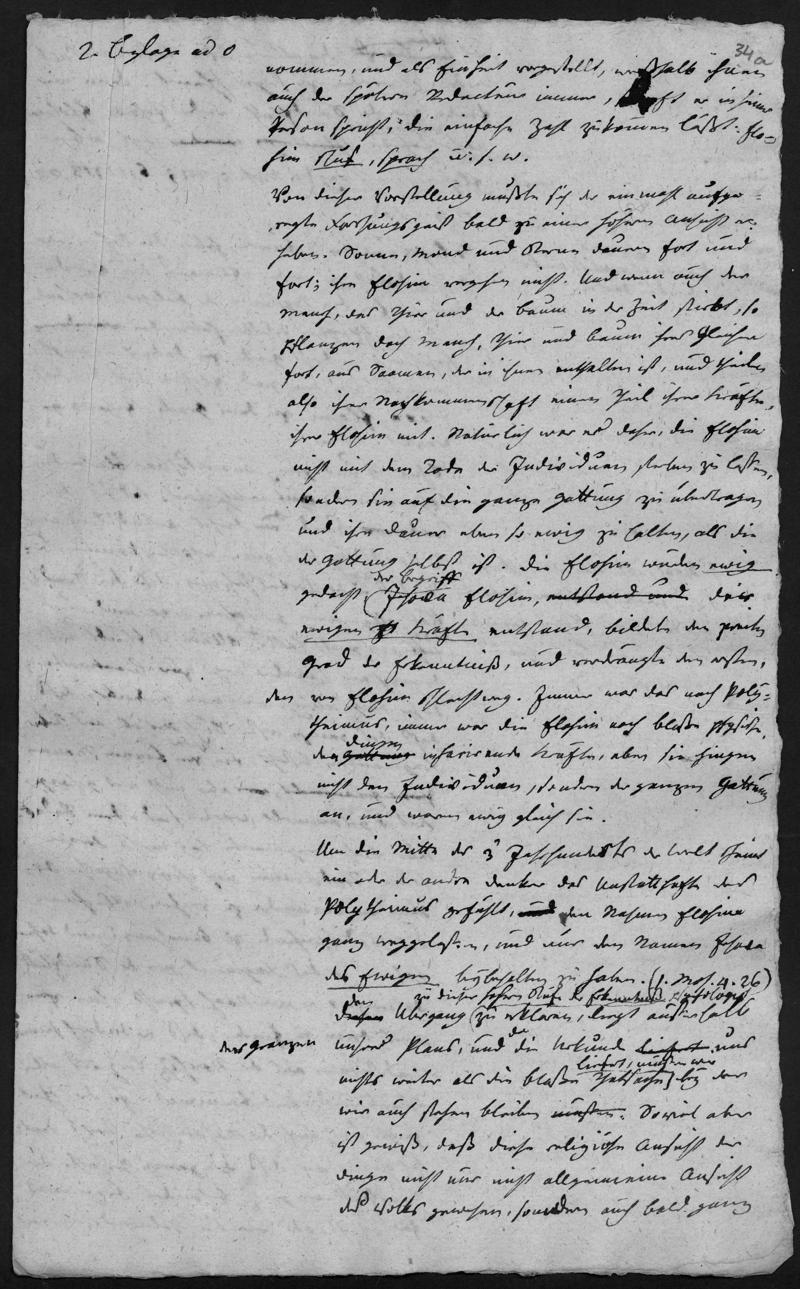 2. Beylage ad 0
34a
nommen, und als Einheit vorgestellt, weßhalb ihnen
auch der spätere Redacteur immer, so oft er in seiner
Person spricht, die einfache Zahl zukommen läßt: Elo=
him schuf, sprach u. s. w.
Von dieser Vorstellung mußte sich der einmahl aufge=
regte Forschungsgeist bald zu einer höhern Ansicht er=
heben. Sonne, Mond und Sterne dauern fort und
fort; ihre Elohim vergehen nicht. Und wenn auch der
Mensch, das Thier und der Baum in der Zeit stirbt, so
pflanzen doch Mensch, Thier und Baum ihres Gleichen
fort, aus Saamen, der in ihnen enthalten ist, und theilen
also ihrer Nachkommenschaft einen Theil ihrer Kräfte,
ihrer Elohim mit. Natürlich war es daher, die Elohim
nicht mit dem Tode der Individuen sterben zu lassen,
sondern sie auf die ganze Gattung zu übertragen
und ihre Dauer eben so ewig zu halten, als die
der Gattung selbst ist. Die Elohim wurden ewig
der Begriff
gedacht, Jhova Elohim, entstand und der
ewigen Kräfte entstand, bildete den zweiten
Grad der Erkenntniß, und verdrängte den ersten,
den von Elohim schlechtweg. Immer war das noch Poly=
theismus, immer war die Elohim noch bloße physische,
Dingen
den Gattung inhärirende Kräfte, aber sie hingen
nicht den Individuen, sondern der ganzen Gattung
an, und waren ewig gleich sie.
Um die Mitte des 3 Jahrhunderts der Welt scheint
ein oder der andre Denker das Unstatthafte des
Polytheismus gefühlt, und den Nahmen Elohim
ganz weggelassen, und nur den Namen Jhova
des Ewigen beybehalten zu haben. (1. Mos. 4. 26)
den zu dieser höhern Stufe der Erkenntniß
diesen Übergang zu erklären, liegt außerhalb
unsres Plans, und da die Urkunde liefert uns
des Ganzen
liefert, müssen wir
nichts weiter als die bloße Thatsache bey der
wir auch stehen bleiben müssen. Soviel aber
ist gewiß, daß diese religiöse Ansicht der
Dinge nicht nur nicht allgemeine Ansicht
des Volks gewesen, sondern auch bald ganz